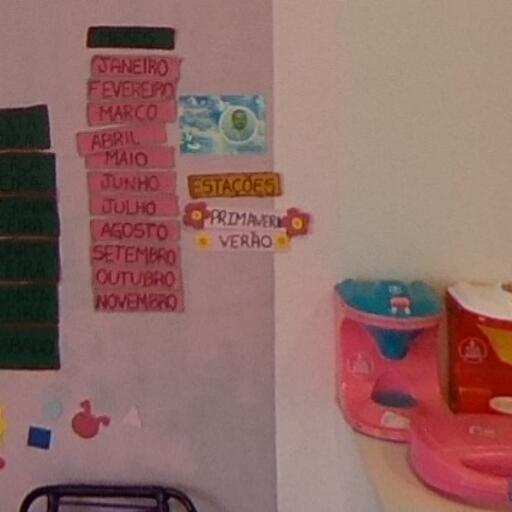 MESES
JANEIRO
FEVEREIRO
MARÇO
ABRIL
MAIO
JUNHO
JULHO
AGOSTO
SETEMBRO
OUTUBRO
NOVEMBRO
ESTAÇÕES
PRIMAVERA
VERÃO
SÁBADO